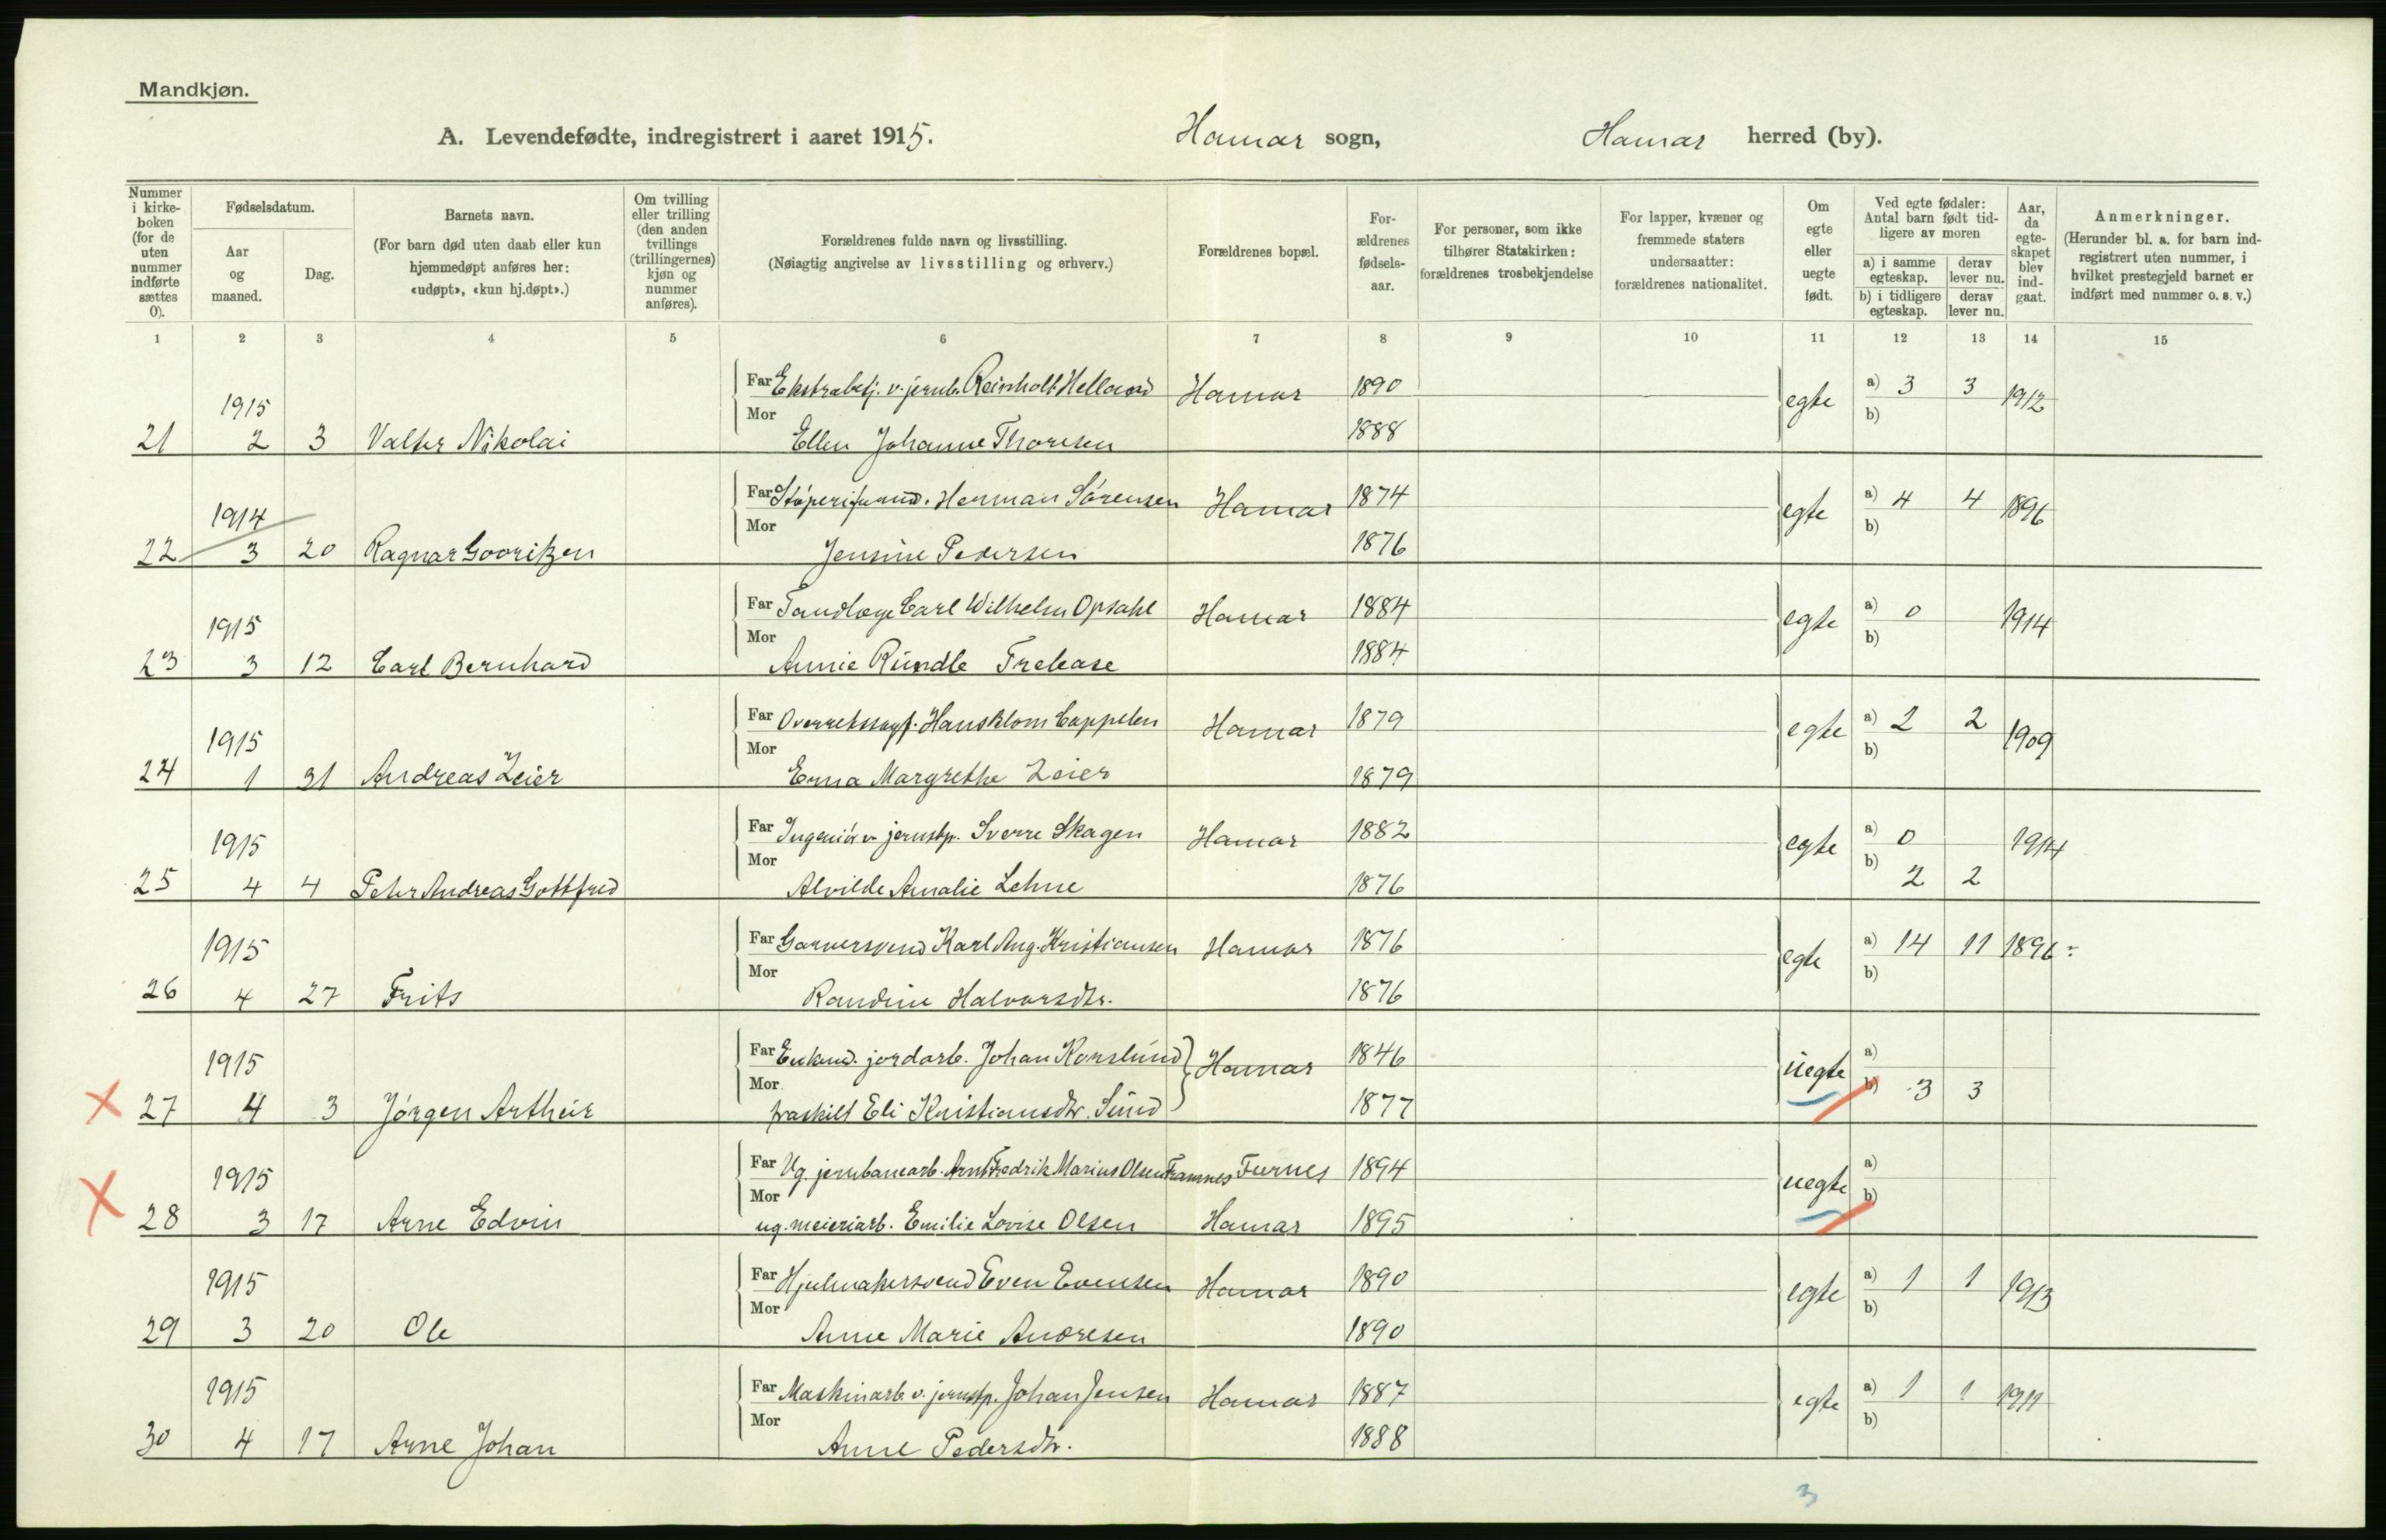 Mandkjøn.
A. Levendefødte, indregistrert i aaret 1915. Hamar sogn, Hamar herred (by).
Nummer i kirkeboken (for de uten nummer indførte sættes 0).
Fødselsdatum.
Aar og maaned.
Dag.
Barnets navn.
(For barn død uten daab eller kun hjemmedøpt anføres her: «udøpt», «kun hj.døpt».)
Om tvilling eller trilling (den anden tvillings (trillingernes) kjøn og nummer anføres).
Forældrenes fulde navn og livsstilling.
(Nøiagtig angivelse av livsstilling og erhverv.)
Forældrenes bopæl.
Forældrenes fødselsaar.
For personer, som ikke tilhører Statskirken: forældrenes trosbekjendelse
For lapper, kvæner og fremmede staters undersaatter: forældrenes nationalitet.
Om egte eller uegte født.
Ved egte fødsler: Antal barn født tidligere av moren
a) i samme egteskap. derav lever nu.
b) i tidligere egteskap. derav lever nu.
Aar, da egteskapet blev indgaat.
Anmerkninger.
(Herunder bl. a. for barn indregistrert uten nummer, i hvilket prestegjeld barnet er indført med nummer o. s. v.)
1 2 3 4 5 6 7 8 9 10 11 12 13 14 15
1915 Far Ekstrabetj. v. jernb. Reinholt Helland Hamar 1890 egte a) 3 3 1912
21 2 3 Valter Nikolai Mor Ellen Johanne Thoresen 1888 b)
1914 Far Støperiformd. Herman Sørensen Hamar 1874 egte a) 4 4 1896
22 3 20 Ragnar Mor Jensine Pedersen 1876 b)
1915 Far Tandlæge Carl Wilhelm Opsahl Hamar 1884 egte a) 0 1914
23 3 12 Carl Bernhard Mor Annie Rundle Trelease 1884 b)
1915 Far Overretssagf. Hans Blom Cappelen Hamar 1879 egte a) 2 2 1909
24 1 31 Andreas Zeier Mor Erna Margrethe Zeier 1879 b)
1915 Far Ingeniør v. jernstp. Sverre Skagen Hamar 1882 egte a) 0 1914
25 4 4 Peter Andreas Gottfred Mor Alvilde Amalie Lehne 1876 b) 2 2
1915 Far Garversvend Karl Aug. Kristiansen Hamar 1876 egte a) 14 11 1896
26 4 27 Frits Mor Randine Halvorsdtr. 1876 b)
1915 Far Enkmd. jordarb. Johan Korslund Hamar 1846 uegte a)
27 4 3 Jørgen Arthur Mor fraskilt Eli Kristiansdtr. Sund 1877 b) 3 3
1915 Far Ug. jernbanearb. Arnt Fredrik Marius Olsen Framnes Furnes 1894 uegte a)
28 3 17 Arne Edvin Mor ug. meieriarb. Emilie Lovise Olsen Hamar 1895 b)
1915 Far Hjulmakersvend Even Evensen Hamar 1890 egte a) 1 1 1913
29 3 20 Ole Mor Anne Marie Andresen 1890 b)
1915 Far Maskinarb. v. jernstp. Johan Jensen Hamar 1887 egte a) 1 1 1911
30 4 17 Arne Johan Mor Anne Pedersdtr. 1888 b)
3